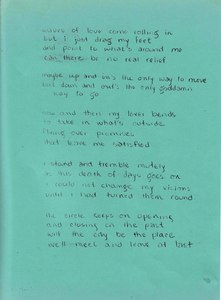 waves of love come rolling in
but i just drag my feet
and point to what's around me
can there be no real relief
maybe up and out's the only way to move
but down and out's the only goddamn
way to go
now and then my lover bends
to take in what's outside
over promises
that leave me satisfied
i stand and tremble mutely
as this death of days goes on
i could not change my visions
until i had turned them round
the circle keeps on opening
and closing on the past
will the city be the place
we'll meet and leave at last